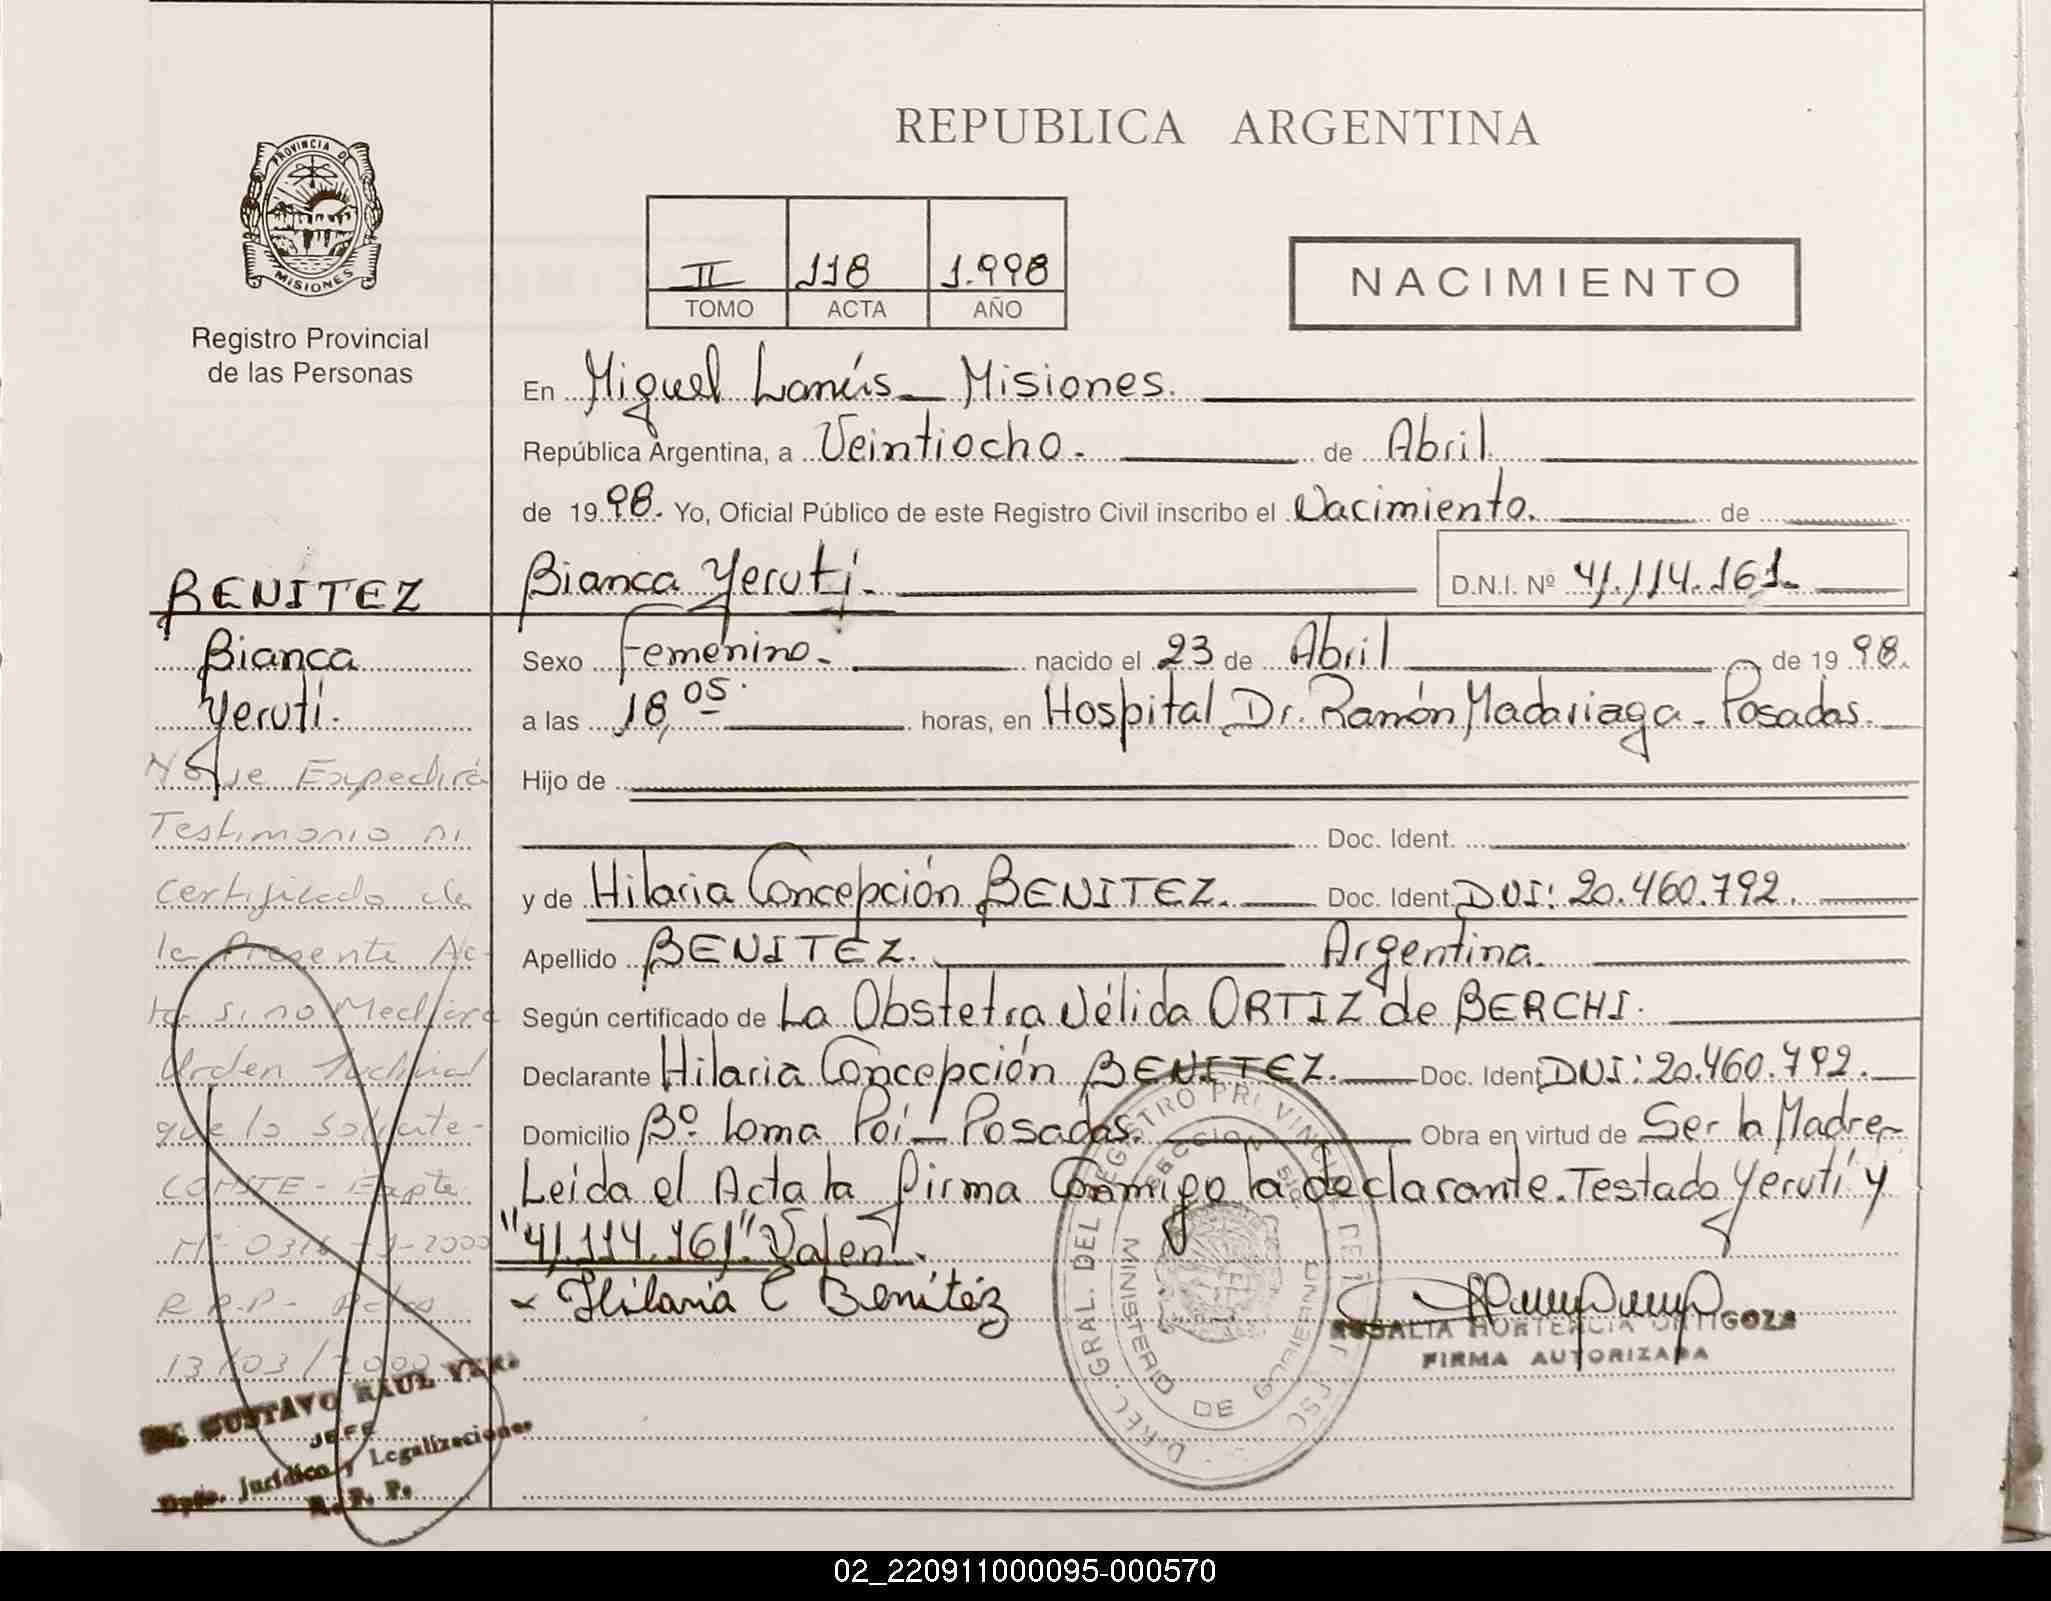 REPUBLICA ARGENTINA
PROVINCIA DE
MISIONES
Registro Provincial
de las Personas
II 118 1.998
TOMO ACTA AÑO
NACIMIENTO
En Miguel Lanús _ Misiones.
República Argentina, a Veintiocho. de Abril
de 1998. Yo, Oficial Público de este Registro Civil inscribo el Nacimiento. de
Bianca Yerutí. D.N.I. Nº 41.114.161.
Sexo Femenino. nacido el 23 de Abril de 1998.
a las 18,05 horas, en Hospital Dr. Ramón Madariaga - Posadas.
Hijo de
Doc. Ident.
y de Hilaria Concepción BENITEZ. Doc. Ident. DNI: 20.460.792.
Apellido BENITEZ. Argentina.
Según certificado de La Obstetra Nélida ORTIZ de BERCHI.
Declarante Hilaria Concepción BENITEZ. Doc. Ident. DNI: 20.460.792.
Domicilio Bº. Loma Poí - Posadas. Obra en virtud de Ser la Madre-
Leída el Acta la firma Conmigo la declarante. Testado Yerutí y
"41.114.161" Valen.
x Hilaria C Benítez
ROSALIA HORTENCIA ORTIGOZA
FIRMA AUTORIZADA
MINISTERIO DE GOBIERNO
BENITEZ
Bianca
Yerutí.
No se Expedirá
Testimonio ni
Certificado de
la Presente Ac-
ta si no Mediara
Orden Judicial
que lo solicite-
Expte.
Nº 0316
R.P.P-
13/03/2000
GUSTAVO RAUL
JEFE
Dpto. Jurídico y Legalizaciones
R. P. P.
02_220911000095-000570